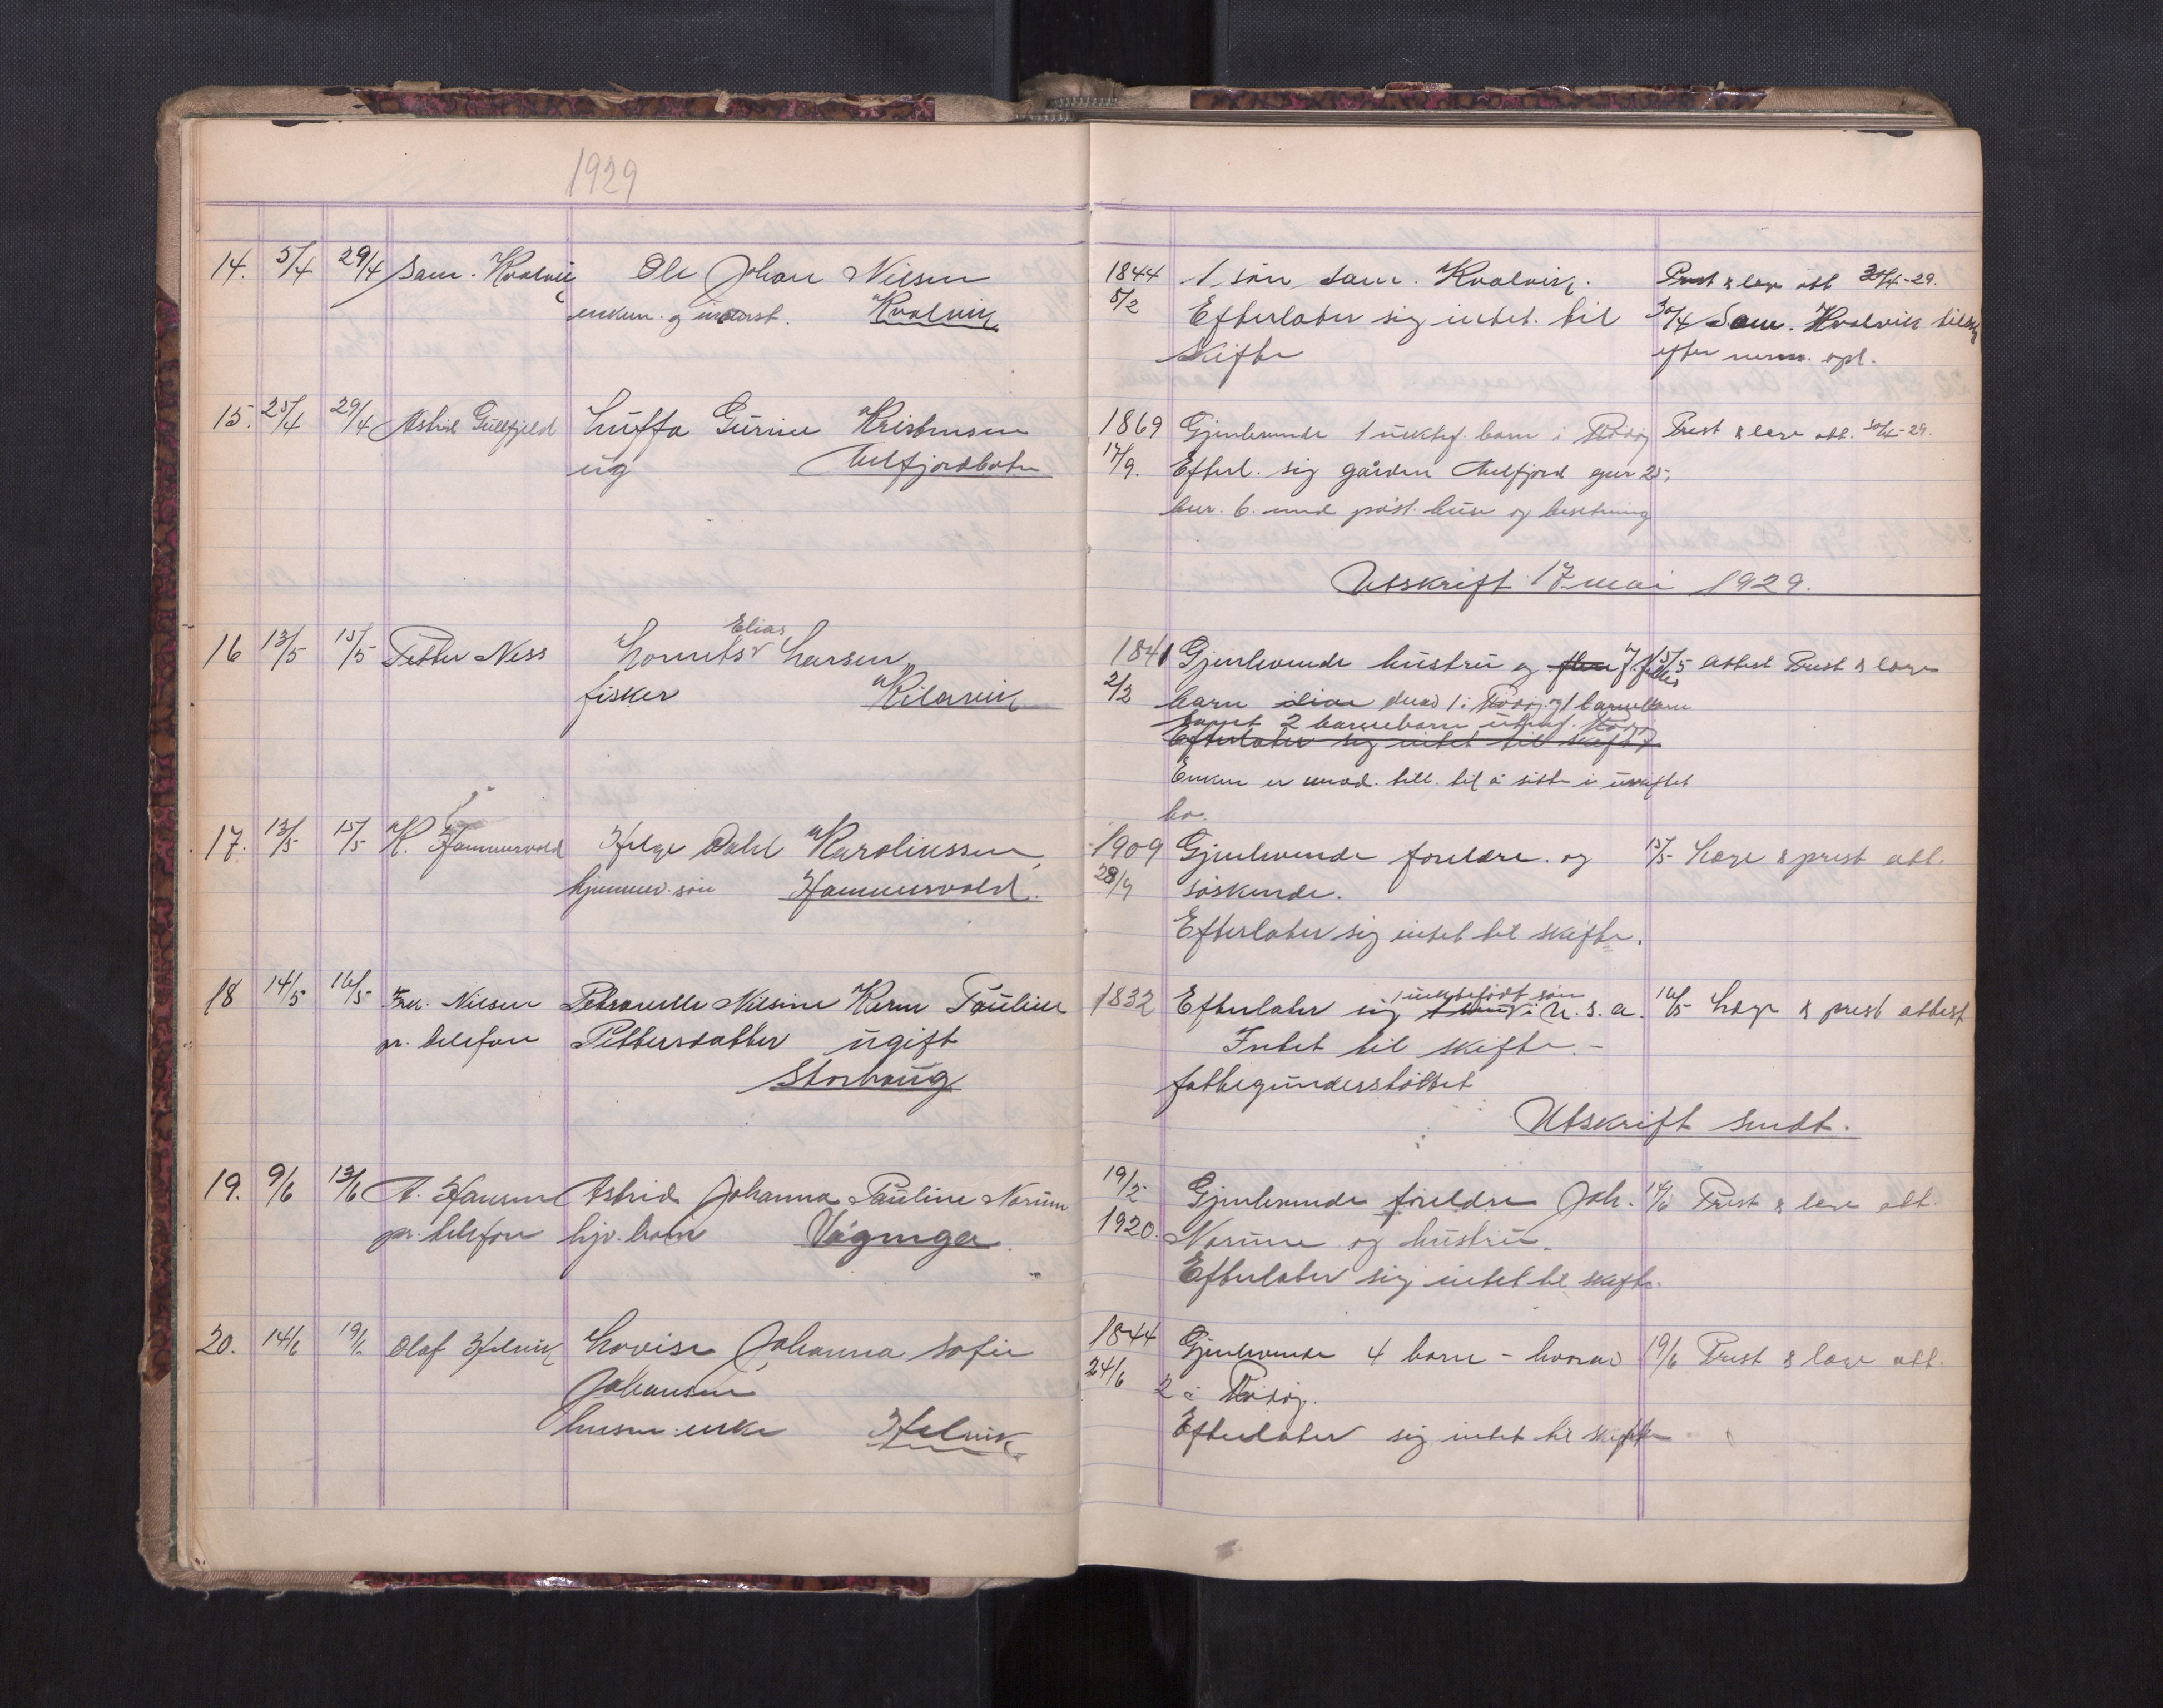 1929
14. 5/4 29/4 Sam. Kvalvik Ole Johan Nilsen 1844 1 sön Sam. Kvalvik. Prest & læge att 30/4-29.
enkem. og inderst. Kvalvik 5/2 Efterlater sig intet til 30/4 Sam. Kvalvik
skifte efter opl.
15. 25/4 29/4 Astrid Gullfjeld Luffa Gurine Kristensen 1869 Gjenlevende 1 uektef. barn i Rödöy Prest & læge att. 30/4-29.
ug 17/9. Efterl. sig gården Melfjord gnr 25,
bnr. 6. med påst. huse og besetning
Utskrift 17 mai 1929.
16 13/5 15/5 Petter Ness Lornts Elias Larsen 1841 Gjenlevende hustru og 7 felles 15/5 Attest Prest & læge
fisker Kilavik 2/2 barn derav 1 i Rödöy og 1 barnebarn
samt 2 barnebarn
Efterlater sig intet til skifte
Enken er till. til å sitte i uskiftet
bo.
17. 13/5 15/5 K. Hammervold Helge Dahl Karolinssen, 1909 Gjenlevende foreldre og 15/5 Læge & prest att.
hjemmev. sön Hammervold. 28/9 söskende.
Efterlater sig intet til skifte.
18 14/5 16/5 Fredr. Nilsen Petronelle Nilsine Karen Pauline 1832 Efterlater sig 1 uektefödt sön i U.S.A. 16/5 Læge & prest attest
pr. telefon Pettersdatter ugift Intet til skifte. -
Storhaug fattigunderstöttet
Utskrift sendt.
19. 9/6 13/6 A. Hansen Astrid Johanna Pauline Norum 19/2 Gjenlevende foreldre Joh. 14/6 Prest & læge att.
pr. telefon hjv. barn Vågnga 1920. Norum og hustru.
Efterlater sig intet til skifte.
20. 14/6 19/6 Olaf Selvik Lovise Johanna Sofie 1844 Gjenlevende 4 barn - hvorav 19/6 Prest & læge att.
Johansen 24/6 2 i Rödöy.
husm. enke Efterlater sig intet til skifte